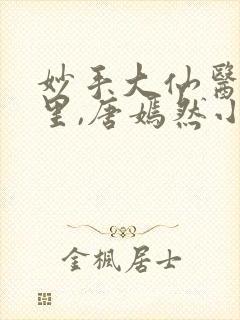 妙手大仙醫
里,唐嫣然小
金楓居士